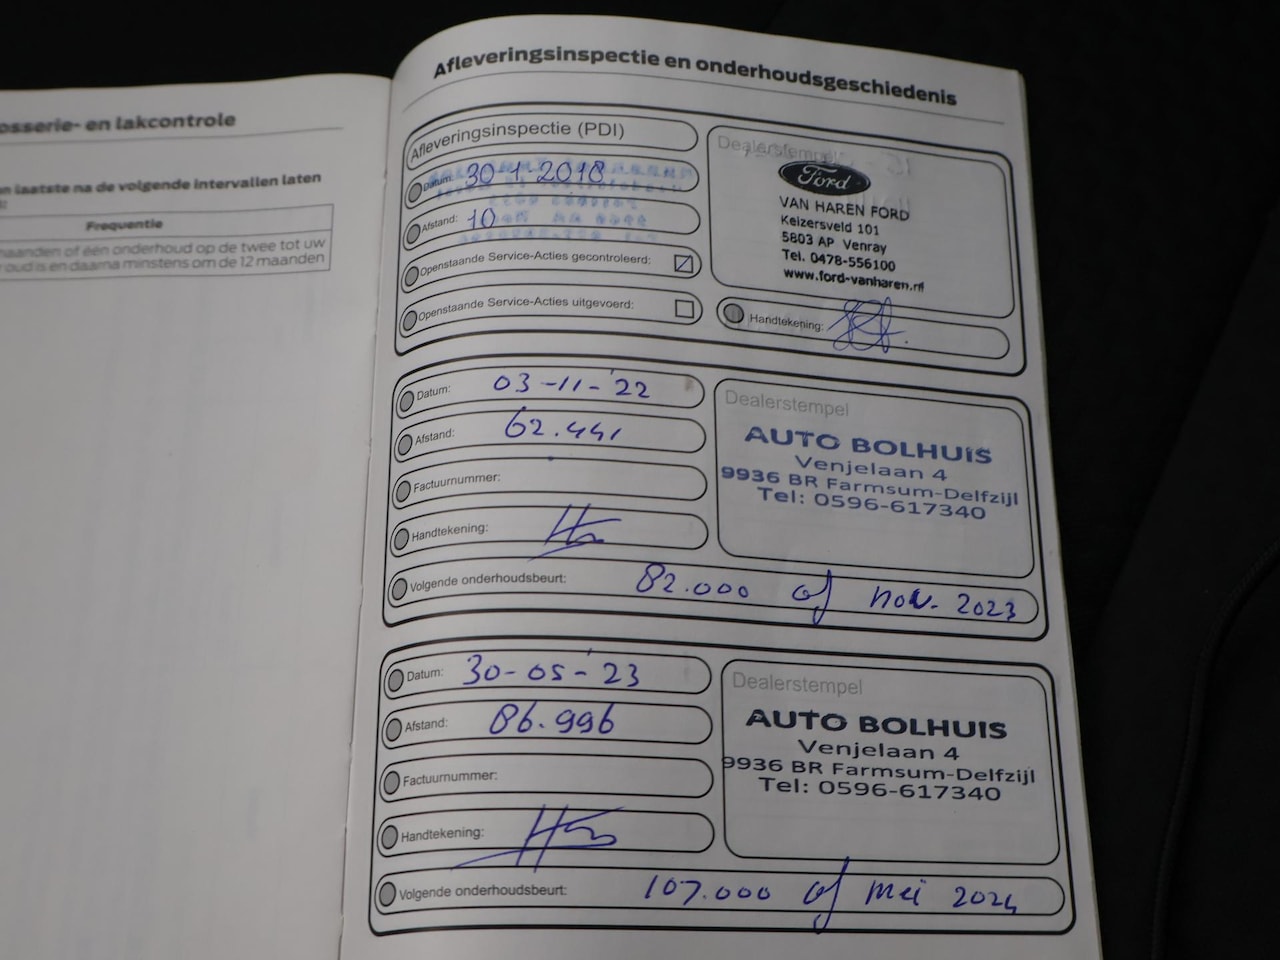 osserie- en lakcontrole
n laatste na de volgende intervallen laten
Frequentie
maanden of één onderhoud op de twee tot uw
oud is en daarna minstens om de 12 maanden
Afleveringsinspectie en onderhoudsgeschiedenis
Afleveringsinspectie (PDI)
Datum: 30-1-2018
Afstand: 10
Openstaande Service-Acties gecontroleerd:
Openstaande Service-Acties uitgevoerd:
Dealerstempel
Ford
VAN HAREN FORD
Keizersveld 101
5803 AP Venray
Tel. 0478-556100
www.ford-vanharen.nl
Handtekening:
Datum: 03-11-'22
Afstand: 62.441
Factuurnummer:
Handtekening:
Dealerstempel
AUTO BOLHUIS
Venjelaan 4
9936 BR Farmsum-Delfzijl
Tel: 0596-617340
Volgende onderhoudsbeurt: 82.000 of nov. 2023
Datum: 30-05-'23
Afstand: 86.996
Factuurnummer:
Handtekening:
Dealerstempel
AUTO BOLHUIS
Venjelaan 4
9936 BR Farmsum-Delfzijl
Tel: 0596-617340
Volgende onderhoudsbeurt: 107.000 of mei 2024